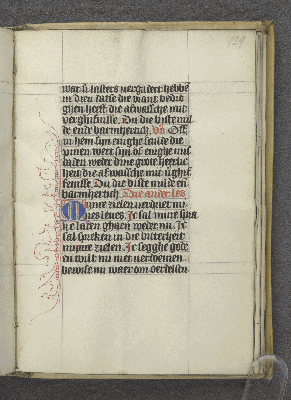 129
wat si lasters vergadert hebbe
in dien dat se die viant bedro
ghen heeft die afwassche mit
verghiffenisse. Du die biste mil
de ende barmhertich. Vs Oft
in hem syn enighe sonde die
pinen wert syn of enighe mis
daden weder dine grote heerlic
heit die afwassche mit dijnre
Du die biste milde en
barmhertich. Die ander les
Mijnre zielen verdriet mi
nes leues. Ic sal mine spra
ke laten ghaen weder mi. Ic
sal spreken in die bitterheit
mijnre zielen. Ic segghe gode
en wilt mi niet verdoemen
bewise mi waer om oerdelstu